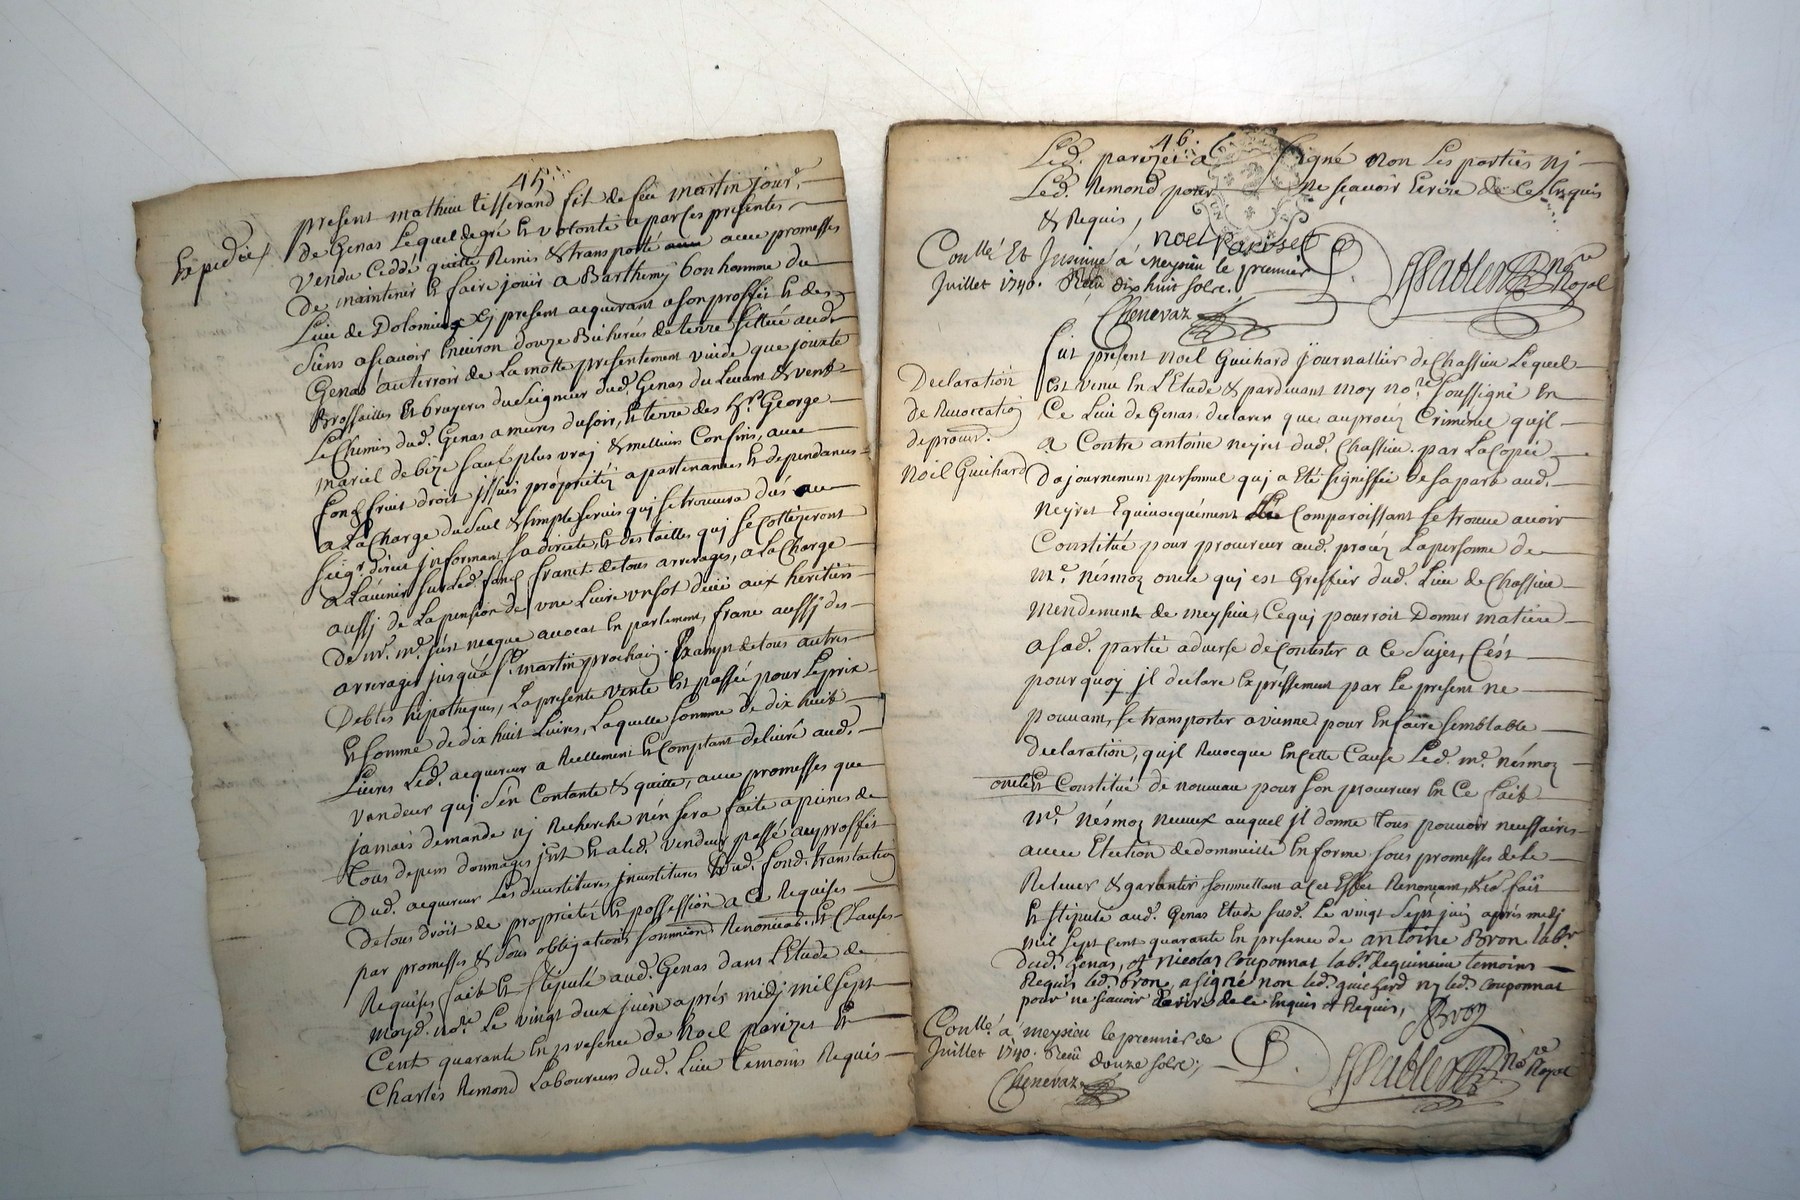 45
Expedié
present mathieu tisserand fil de feu martin jour.
de Genas Lequel de gré et volonté a par ces presentes
vendu Ceddé quitté Remis & transporté avec promesses
de maintenir et faire jouir a Barthemy bonhomme du
Lieu de Dolomieu xj present acquerant a son proffit et des
siens asçavoir Environ douze Bicherés de terre sittuée aud.
Genas au terroir de La motte presentement vuide que jouxte
Brossailles et bruyeres du seigneur dud. Genas du Levant & vent
Le Chemin dud. Genas a mures du soir, et terre des hrs George
mariel de bize sauf plus vraj & meilleurs Confins, avec
fond fruit droit jssues propriétéz apartenances et dependances
a La Charge du seul & simple servis quj se trouvera dus au
seigr. direct jnformant sa directe, et des tailles quj se Cottizeront
a L'avenir sur Led. fond franct de tous arrerages, a La Charge
aussj de La pension de une Livre un sol deüe aux heritiers
de mr. me. avocat en parlement, franc aussj des
arrerages jusqu'a st. martin prochain. Exampt de tous autres
Debtes hipotheques, La presente vente est passée pour Le prix
et somme de dix huit Livres, Laquelle somme de dix huit
Livres Led. acquereur a Reellement et Comptant delivré aud.
vendeur quj s'en Contante & quitte, avec promesses que
jamais demande nj Recherche n'en sera faite a peines de
tous depens domages jnt. et a led. vendeur passé au proffit
Dud. acquereur Les devestitures jnvestitures Dud. fond, translaction
de tous droit de proprietéz et possession a ce Requises
par promesses & sous obligations soumnions Renonciaons. et Clauses
Requises fait et stipulé aud. Genas dans L'Etude de
moyd. nore. Le vingt deux juin aprés midj mil sept
Cent quarante En presence de Noel parizet et
Charles Remond Laboureurs dud. Lieu temoins Requis
46.
Led. parizet a signé non Les parties nj
Led. Remond pour ne sçavoir Ecrire de ce Enquis
& Requis,
noel Parizet
Conllé Et Insinué à meysieu le premier
Juillet 1740. Reçu dix huit sols.
Chenevaz
P.
Sablier nore Royal
Declaration
de Revoccation
de procur.
Noel Guichard
fut present Noel Guichard journallier de Chassieu Lequel
est venu En L'Etude & pardevant moy nore. soussigné En
Ce Lieu de Genas declarer que au procez Criminel qu'jl
a Contre antoine neyret dud. Chassieu. par La Copie
d'ajournement personnel quj a Eté signiffiée de sa part aud.
Neyret Equivocquément Le Comparoissant se trouve avoir
Constitué pour procureur aud. procéz La personne de
me. Nésmoz oncle quj est Greffier dud. Lieu de Chassieu
mendement de meysieu, Ce quj pourroit Donner matière
a sad. partie adverse de Contester a Ce sujet, C'ést
pourquoy jl declare Expréssement par Le present ne
pouvant, se transporter a vienne pour En faire semblable
declaration, qu'jl Revocque En Cette Cause Led. me. Nésmoz
oncle et Constitué de nouveau pour son procureur En Ce fait
me. Nésmoz neveux auquel jl donne tous pouvoir neccessaires
avec Election de dommeille En forme sous promesses de Le
Relever & garentir sommettant a Cet Effet Renonceant, & ca fait
et stipulé aud. Genas Etude susd. Le vingt sept juin aprés midj
mil sept Cent quarante En presence de antoine Bron labr
dud. Genas, et nicolas Couponnat labr. de quinsieu temoins
Requis led. bron, a signé non led. guichard ny led. Couponnat
pour ne sçavoir Ecrire de ce Enquis et Requis,
ABron
Conllé à meysieu le premier de
Juillet 1740. Reçu douze sols.
Chenevaz
P.
Sablier nore Royal